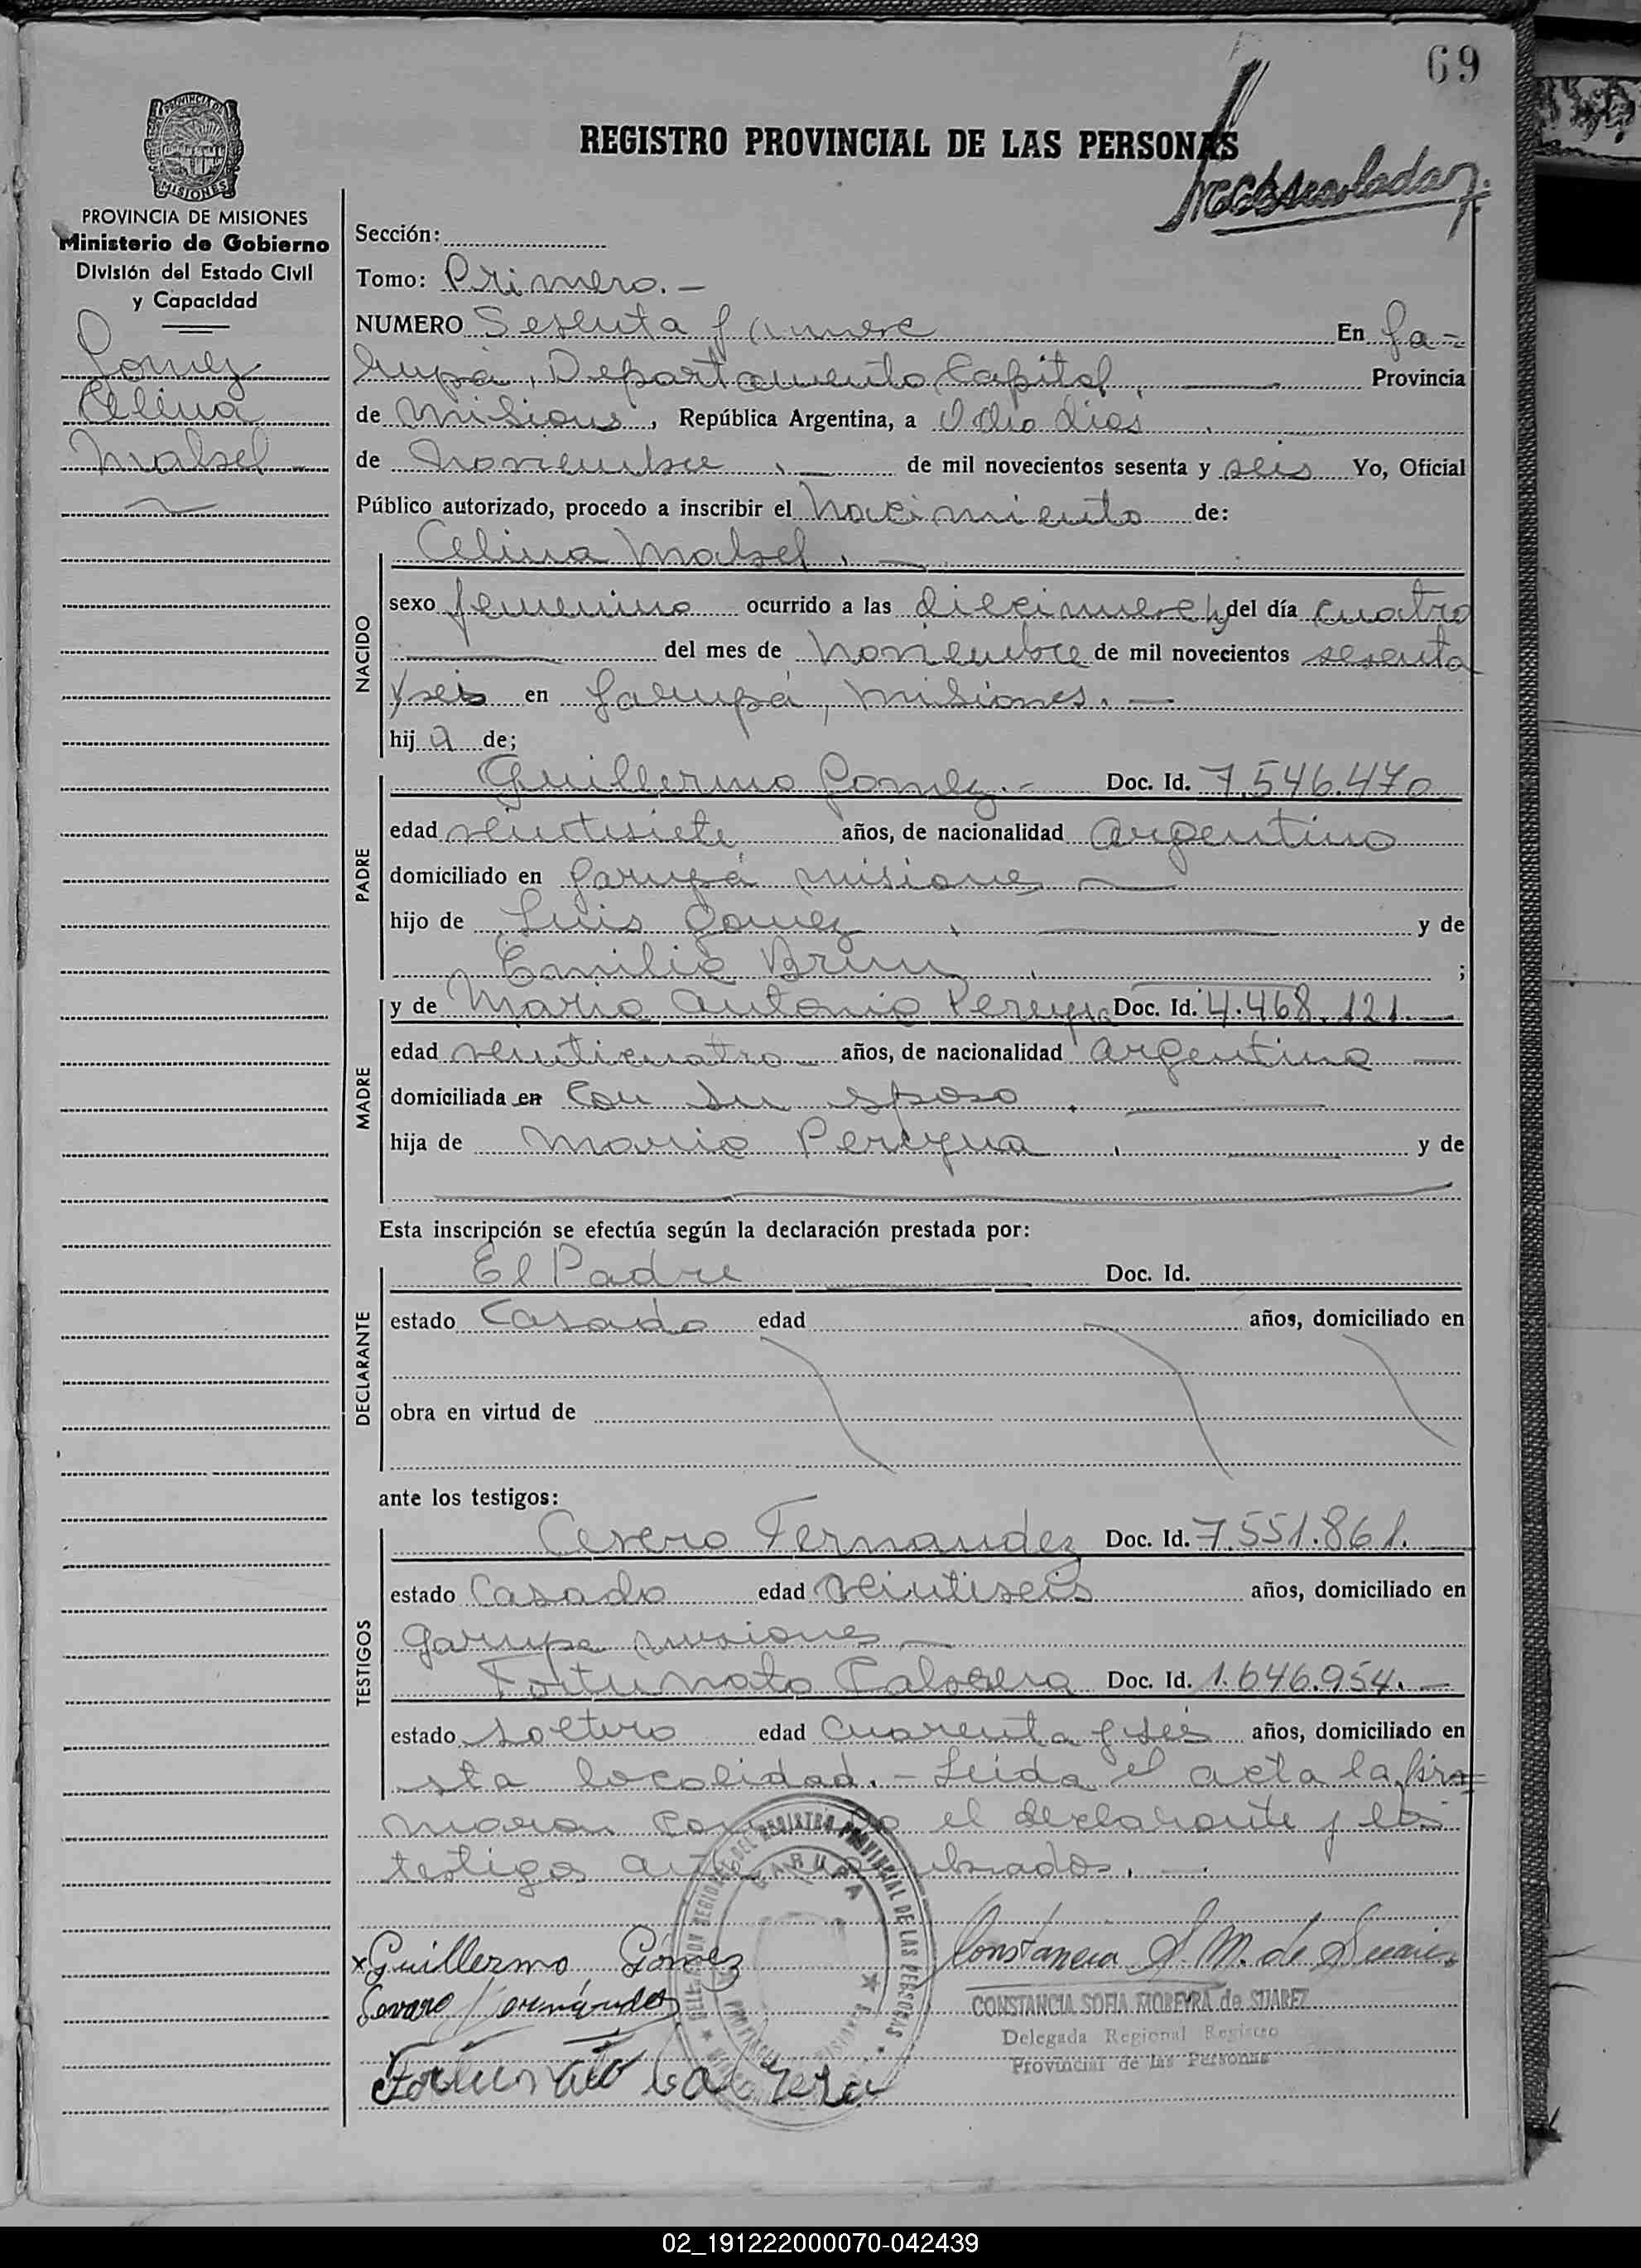 69
REGISTRO PROVINCIAL DE LAS PERSONAS
PROVINCIA DE MISIONES
Ministerio de Gobierno
División del Estado Civil
y Capacidad
Gomez
Celina
Mabel
Sección:
Tomo: Primero. —
NUMERO Sesenta y nueve En Ga=
rupá, Departamento Capital, — Provincia
de Misiones, República Argentina, a Ocho dias
de noviembre, — de mil novecientos sesenta y seis Yo, Oficial
Público autorizado, procedo a inscribir el nacimiento de:
Celina Mabel. —
NACIDO
sexo femenino ocurrido a las diecinueve hs del día cuatro
— del mes de noviembre de mil novecientos sesenta
y seis en Garupá, Misiones. —
hij a de;
PADRE
Guillermo Gomez. - Doc. Id. 7.546.470
edad veintisiete años, de nacionalidad argentino
domiciliado en Garupá misiones —
hijo de Luis Gomez, — y de
Emilia Brun, ;
MADRE
y de Maria Antonia Pereyra Doc. Id. 4.468.121. —
edad veinticuatro años, de nacionalidad argentina —
domiciliada en con su esposo, —
hija de Maria Pereyra, — y de
Esta inscripción se efectúa según la declaración prestada por:
DECLARANTE
El Padre — Doc. Id.
estado Casado edad años, domiciliado en
obra en virtud de
ante los testigos:
TESTIGOS
Fernandez Doc. Id. 7.551.861.
estado Casado edad veintiseis años, domiciliado en
Garupa misiones —
Fortunato Cabrera Doc. Id. 1.646.954. —
estado soltero edad cuarenta y seis años, domiciliado en
esta localidad. - Leida el acta la fir=
maron conmigo el declarante y los
testigos —
GARUPA
REGISTRO PROVINCIAL DE LAS PERSONAS
x Guillermo Gómez
Constancia S. M. de Suarez
Fernández
CONSTANCIA SOFIA MOREYRA de SUAREZ
Delegada Regional Registro
Provincial de las Personas
Fortunato Cabrera
02_191222000070-042439